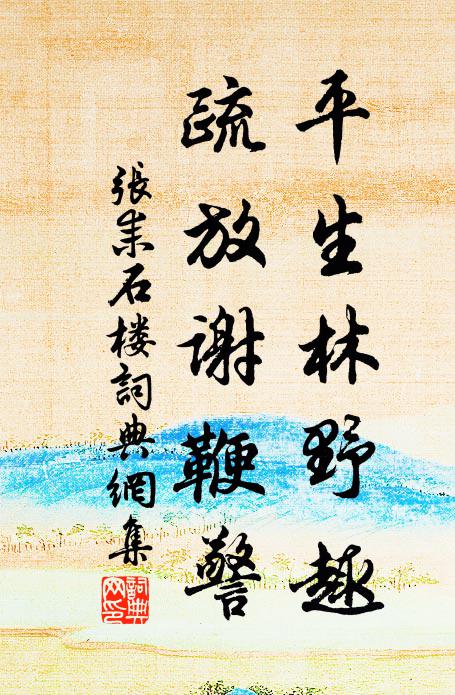 平生林野趣
疏放謝鞭警
張耒石楼詞典網集
詞典